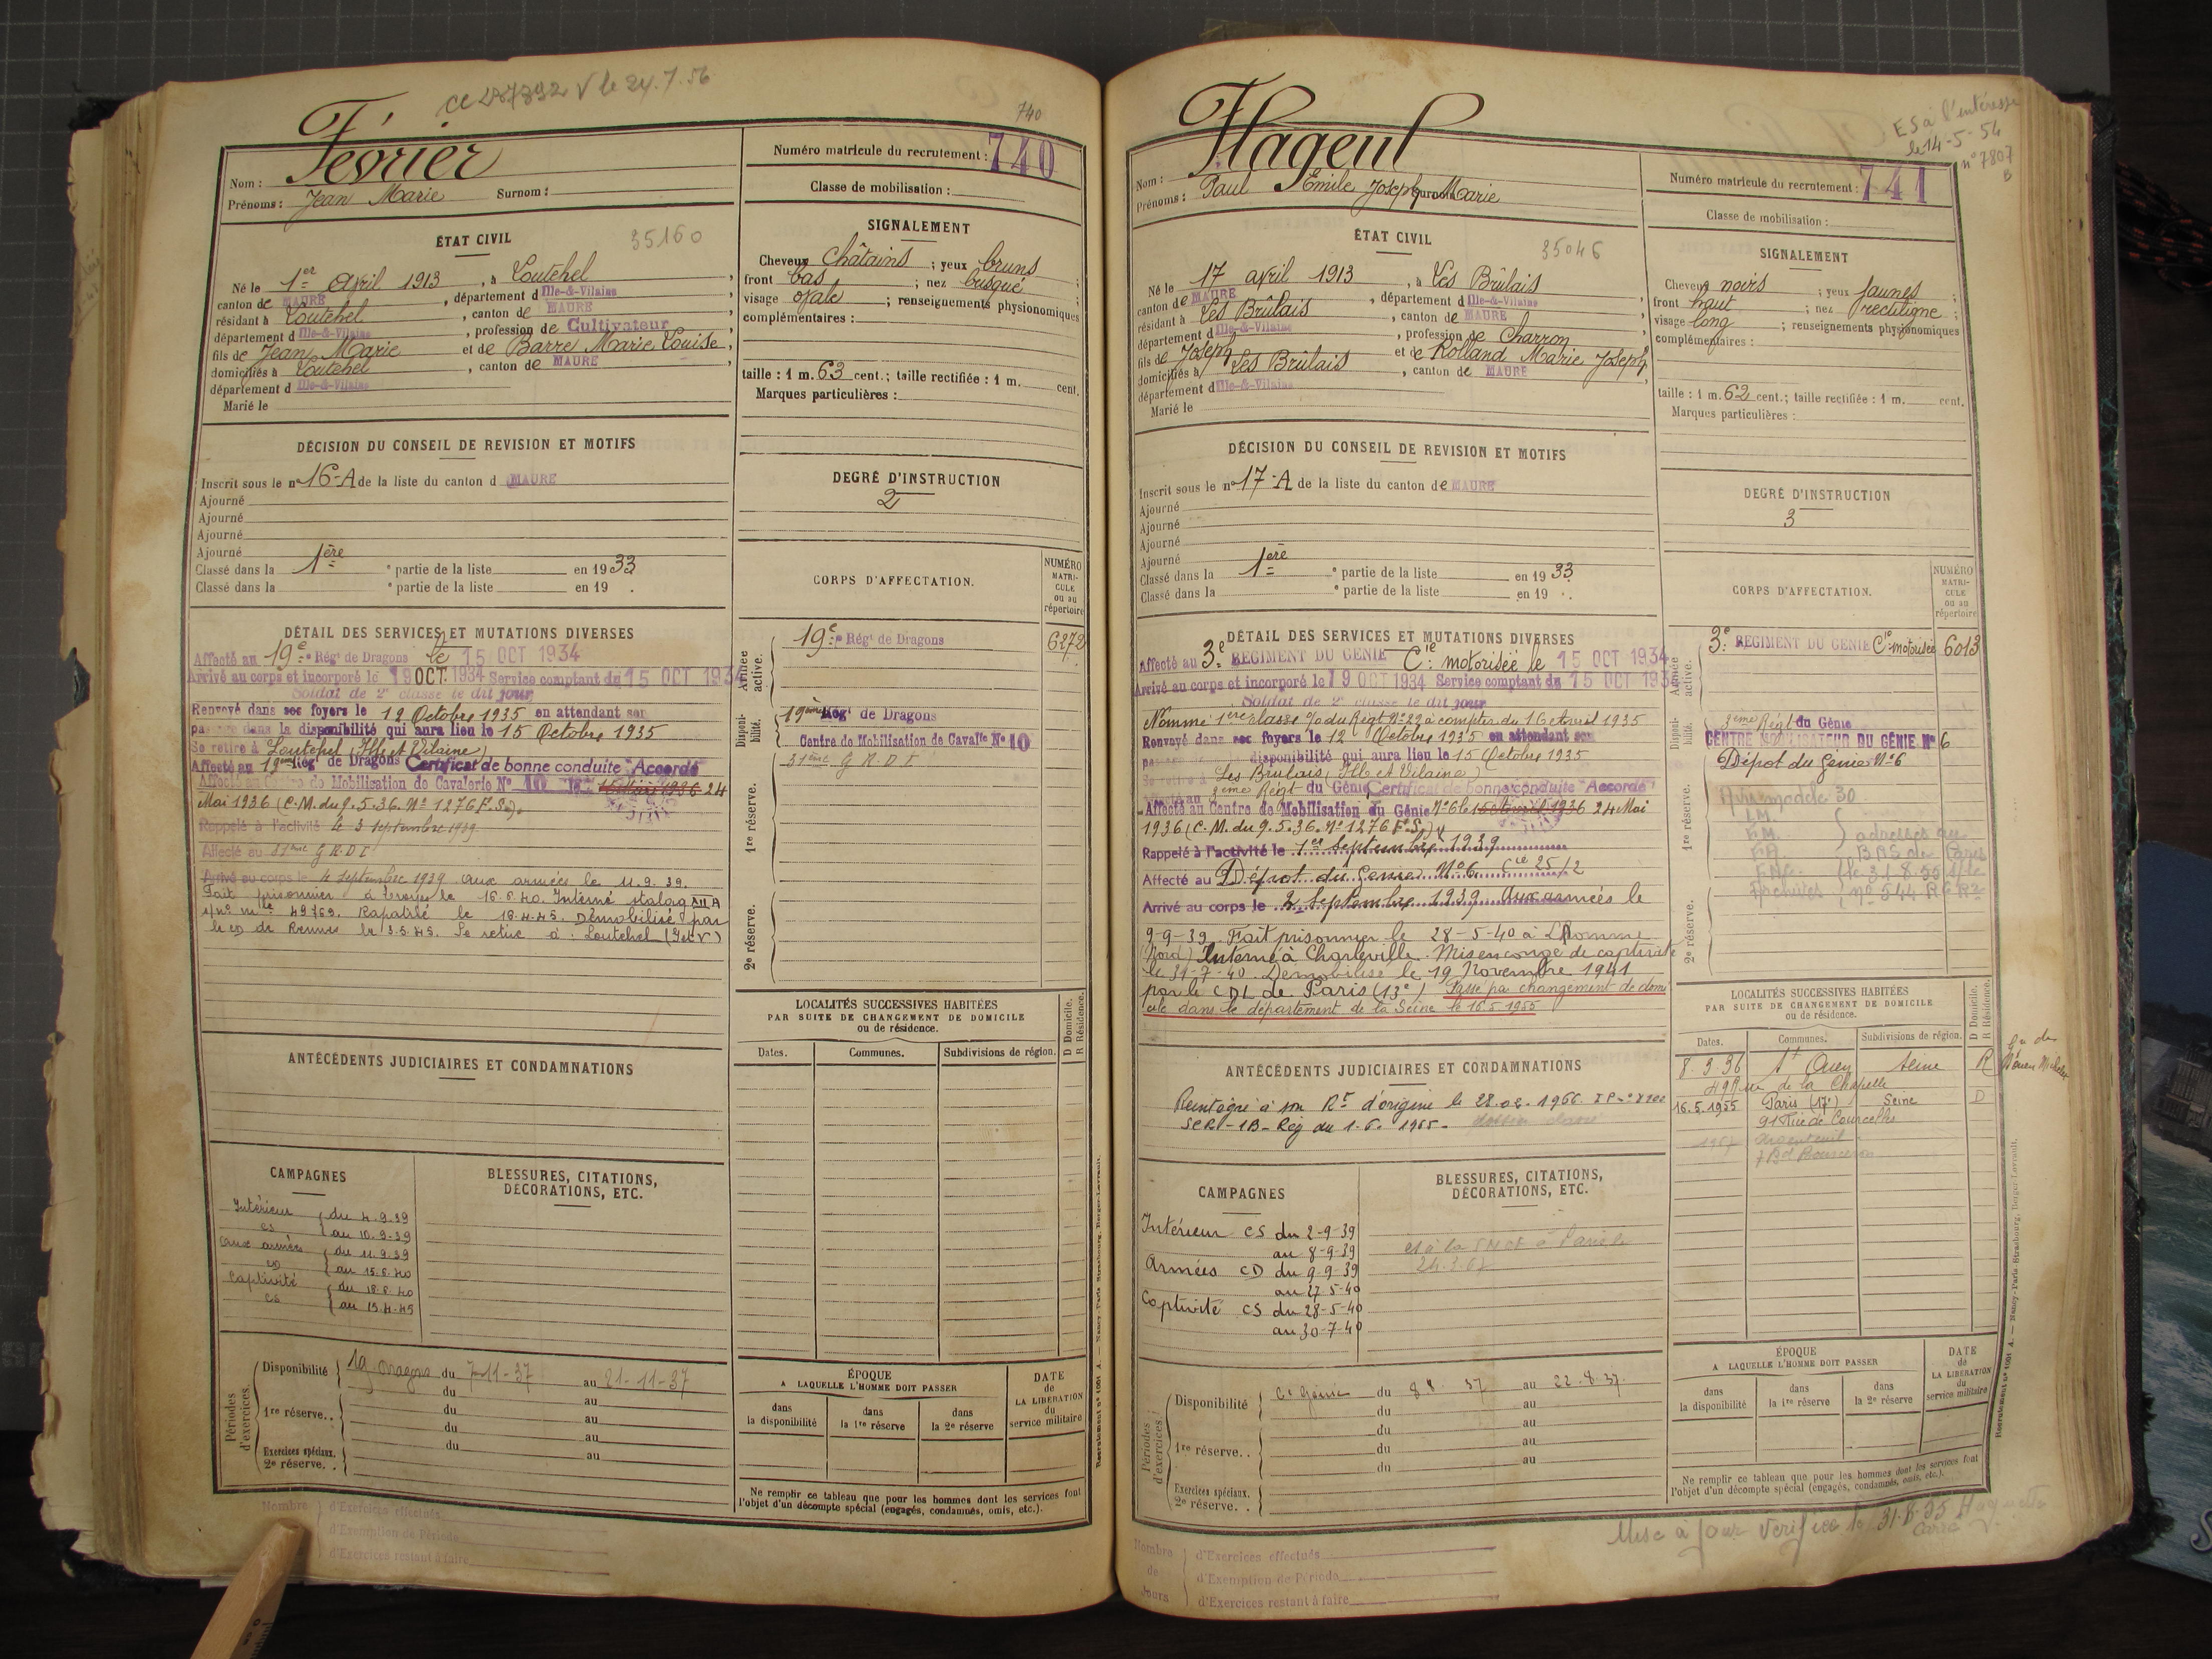 cc 287392 V le 24.7.56
740
Février
Numéro matricule du recrutement : 740
Nom :
Prénoms : Jean Marie Surnom :
Classe de mobilisation :
ÉTAT CIVIL
35160
Né le 1er Avril 1913, à Loutehel,
canton de MAURE, département d Ille-&-Vilaine
résidant à Loutehel, canton de MAURE
département d Ille-&-Vilaine, profession de Cultivateur,
fils de Jean Marie et de Barre Marie Louise,
domiciliés à Loutehel, canton de MAURE
département d Ille-&-Vilaine
Marié le
SIGNALEMENT
Cheveux châtains ; yeux bruns ;
front bas ; nez busqué ;
visage ovale ; renseignements physionomiques
complémentaires :
taille : 1 m. 63 cent. ; taille rectifiée : 1 m. cent.
Marques particulières :
DÉCISION DU CONSEIL DE REVISION ET MOTIFS
Inscrit sous le n° 16-A de la liste du canton d MAURE
Ajourné
Ajourné
Ajourné
Ajourné
Classé dans la 1ère e partie de la liste en 1933.
Classé dans la e partie de la liste en 19 .
DEGRÉ D'INSTRUCTION
2
CORPS D'AFFECTATION.
NUMÉRO MATRI-CULE ou au répertoire
Armée active.
19e Régt de Dragons 6272
Disponi-bilité.
19ème Régt de Dragons
Centre de Mobilisation de Cavalie No 10
1re réserve.
31ème G R D I
2e réserve.
DÉTAIL DES SERVICES ET MUTATIONS DIVERSES
Affecté au 19e Régt de Dragons le 15 OCT 1934
Arrivé au corps et incorporé le 19 OCT 1934 Service comptant du 15 OCT 1934
Soldat de 2e classe le dit jour
Renvoyé dans ses foyers le 12 Octobre 1935 en attendant son
passage dans la disponibilité qui aura lieu le 15 Octobre 1935
Se retire à Loutehel (Ille et Vilaine)
Affecté au 19ème Régt de Dragons Certificat de bonne conduite "Accordé"
Affecté au Centre de Mobilisation de Cavalerie No 10 le 24
Mai 1936 (C.M. du 9.5.36. No 1276 F.S.).
Rappelé à l'activité le 3 septembre 1939
Affecté au 31ème G R D I
Arrivé au corps le 4 septembre 1939. Aux armées le 11.9.39.
Fait prisonnier à Troyes le 16.6.40. Interné stalag XII A
s/no mle 49769. Rapatrié le 18.4.45. Démobilisé par
le CD de Rennes le 3.5.45. Se retire à : Loutehel (I et V)
ANTÉCÉDENTS JUDICIAIRES ET CONDAMNATIONS
LOCALITÉS SUCCESSIVES HABITÉES
PAR SUITE DE CHANGEMENT DE DOMICILE
ou de résidence.
D Domicile.
R Résidence.
Dates. Communes. Subdivisions de région.
CAMPAGNES
Intérieur du 4.9.39
CS au 10.9.39
Aux armées du 11.9.39
CD au 15.6.40
Captivité du 16.6.40
CS au 15.4.45
BLESSURES, CITATIONS,
DÉCORATIONS, ETC.
Périodes d'exercices.
Disponibilité 19 Dragons du 7-11-37 au 21-11-37
du au
1re réserve. . du au
du au
Exercices spéciaux. du au
2e réserve. .
ÉPOQUE
A LAQUELLE L'HOMME DOIT PASSER
dans la disponibilité
dans la 1re réserve
dans la 2e réserve
DATE de LA LIBÉRATION du service militaire
Ne remplir ce tableau que pour les hommes dont les services font
l'objet d'un décompte spécial (engagés, condamnés, omis, etc.).
Recrutement no 1001 A. — Nancy-Paris-Strasbourg, Berger-Levrault.
Nombre
d'Exercices effectués
d'Exemption de Période
d'Exercices restant à faire
Hageul
ES à l'intéressé
le 14-5-54
n° 7807
B
Numéro matricule du recrutement : 741
Nom :
Prénoms : Paul Emile Joseph Marie
Surnom
Classe de mobilisation :
ÉTAT CIVIL
35046
Né le 17 avril 1913, à Les Brûlais,
canton de MAURE, département d Ille-&-Vilaine
résidant à Les Brûlais, canton de MAURE
département d Ille-&-Vilaine, profession de Charron
fils de Joseph et de Rolland Marie Joseph,
domiciliés à Les Brûlais, canton de MAURE
département d Ille-&-Vilaine
Marié le
SIGNALEMENT
Cheveux noirs ; yeux jaunes ;
front haut ; nez rectiligne ;
visage long ; renseignements physionomiques
complémentaires :
taille : 1 m. 62 cent. ; taille rectifiée : 1 m. cent.
Marques particulières :
DÉCISION DU CONSEIL DE REVISION ET MOTIFS
Inscrit sous le n° 17-A de la liste du canton de MAURE
Ajourné
Ajourné
Ajourné
Ajourné
Classé dans la 1ère e partie de la liste en 1933.
Classé dans la e partie de la liste en 19 .
DEGRÉ D'INSTRUCTION
3
CORPS D'AFFECTATION.
NUMÉRO MATRI-CULE ou au répertoire
Armée active.
3e REGIMENT DU GENIE Cie motorisée 6013
Disponi-bilité.
3ème Régt du Génie
CENTRE MOBILISATEUR DU GÉNIE No 6
1re réserve.
Dépôt du Génie No 6
modèle 30
2e réserve.
DÉTAIL DES SERVICES ET MUTATIONS DIVERSES
Affecté au 3e REGIMENT DU GENIE Cie motorisée le 15 OCT 1934
Arrivé au corps et incorporé le 19 OCT 1934 Service comptant du 15 OCT 1934
Soldat de 2e classe le dit jour
Nommé 1ère classe o/ du Régt No 22 à compter du 16 Avril 1935
Renvoyé dans ses foyers le 12 Octobre 1935 en attendant son
passage disponibilité qui aura lieu le 15 Octobre 1935
Se retire à Les Brulais (Ille et Vilaine)
Affecté au 3ème Régt du Génie Certificat de bonne conduite "Accordé"
Affecté au Centre de Mobilisation du Génie No 6 le 24 Mai
1936 (C.M. du 9.5.36. No 1276 F.S.)
Rappelé à l'activité le 1er Septembre 1939
Affecté au Dépôt du Génie No 6 Cie 25/2
Arrivé au corps le 2 Septembre 1939 Aux armées le
9-9-39 Fait prisonnier le 28-5-40 à Lhomme
(Nord) Interné à Charleville. Mis en congé de captivité
le 31-7-40. Démobilisé le 19 Novembre 1941
par le CDL de Paris (13e) Passé par changement de domi
cile dans le département de la Seine le 16.5.1955
ANTÉCÉDENTS JUDICIAIRES ET CONDAMNATIONS
Réintégré à son Rt d'origine le 28.02.1966
LOCALITÉS SUCCESSIVES HABITÉES
PAR SUITE DE CHANGEMENT DE DOMICILE
ou de résidence.
D Domicile.
R Résidence.
Dates. Communes. Subdivisions de région.
8.3.36 St Ouen Seine R
49 Rue de la Chapelle
16.5.1955 Paris (17e) Seine D
91 Rue de Courcelles
Argenteuil
CAMPAGNES
Intérieur CS du 2-9-39
au 8-9-39
Armées CD du 9-9-39
au 27-5-40
Captivité CS du 28-5-40
au 30-7-40
BLESSURES, CITATIONS,
DÉCORATIONS, ETC.
Périodes d'exercices.
Disponibilité Ct Génie du 8 8. 37 au 22.8.37.
du au
1re réserve. . du au
du au
du au
Exercices spéciaux.
2e réserve. .
ÉPOQUE
A LAQUELLE L'HOMME DOIT PASSER
dans la disponibilité
dans la 1re réserve
dans la 2e réserve
DATE de LA LIBÉRATION du service militaire
Ne remplir ce tableau que pour les hommes dont les services font
l'objet d'un décompte spécial (engagés, condamnés, omis, etc.).
Recrutement no 1001 A. — Nancy-Paris-Strasbourg, Berger-Levrault.
Mise à jour vérifiée le 31-8-55
Nombre de Jours
d'Exercices effectués
d'Exemption de Période
d'Exercices restant à faire